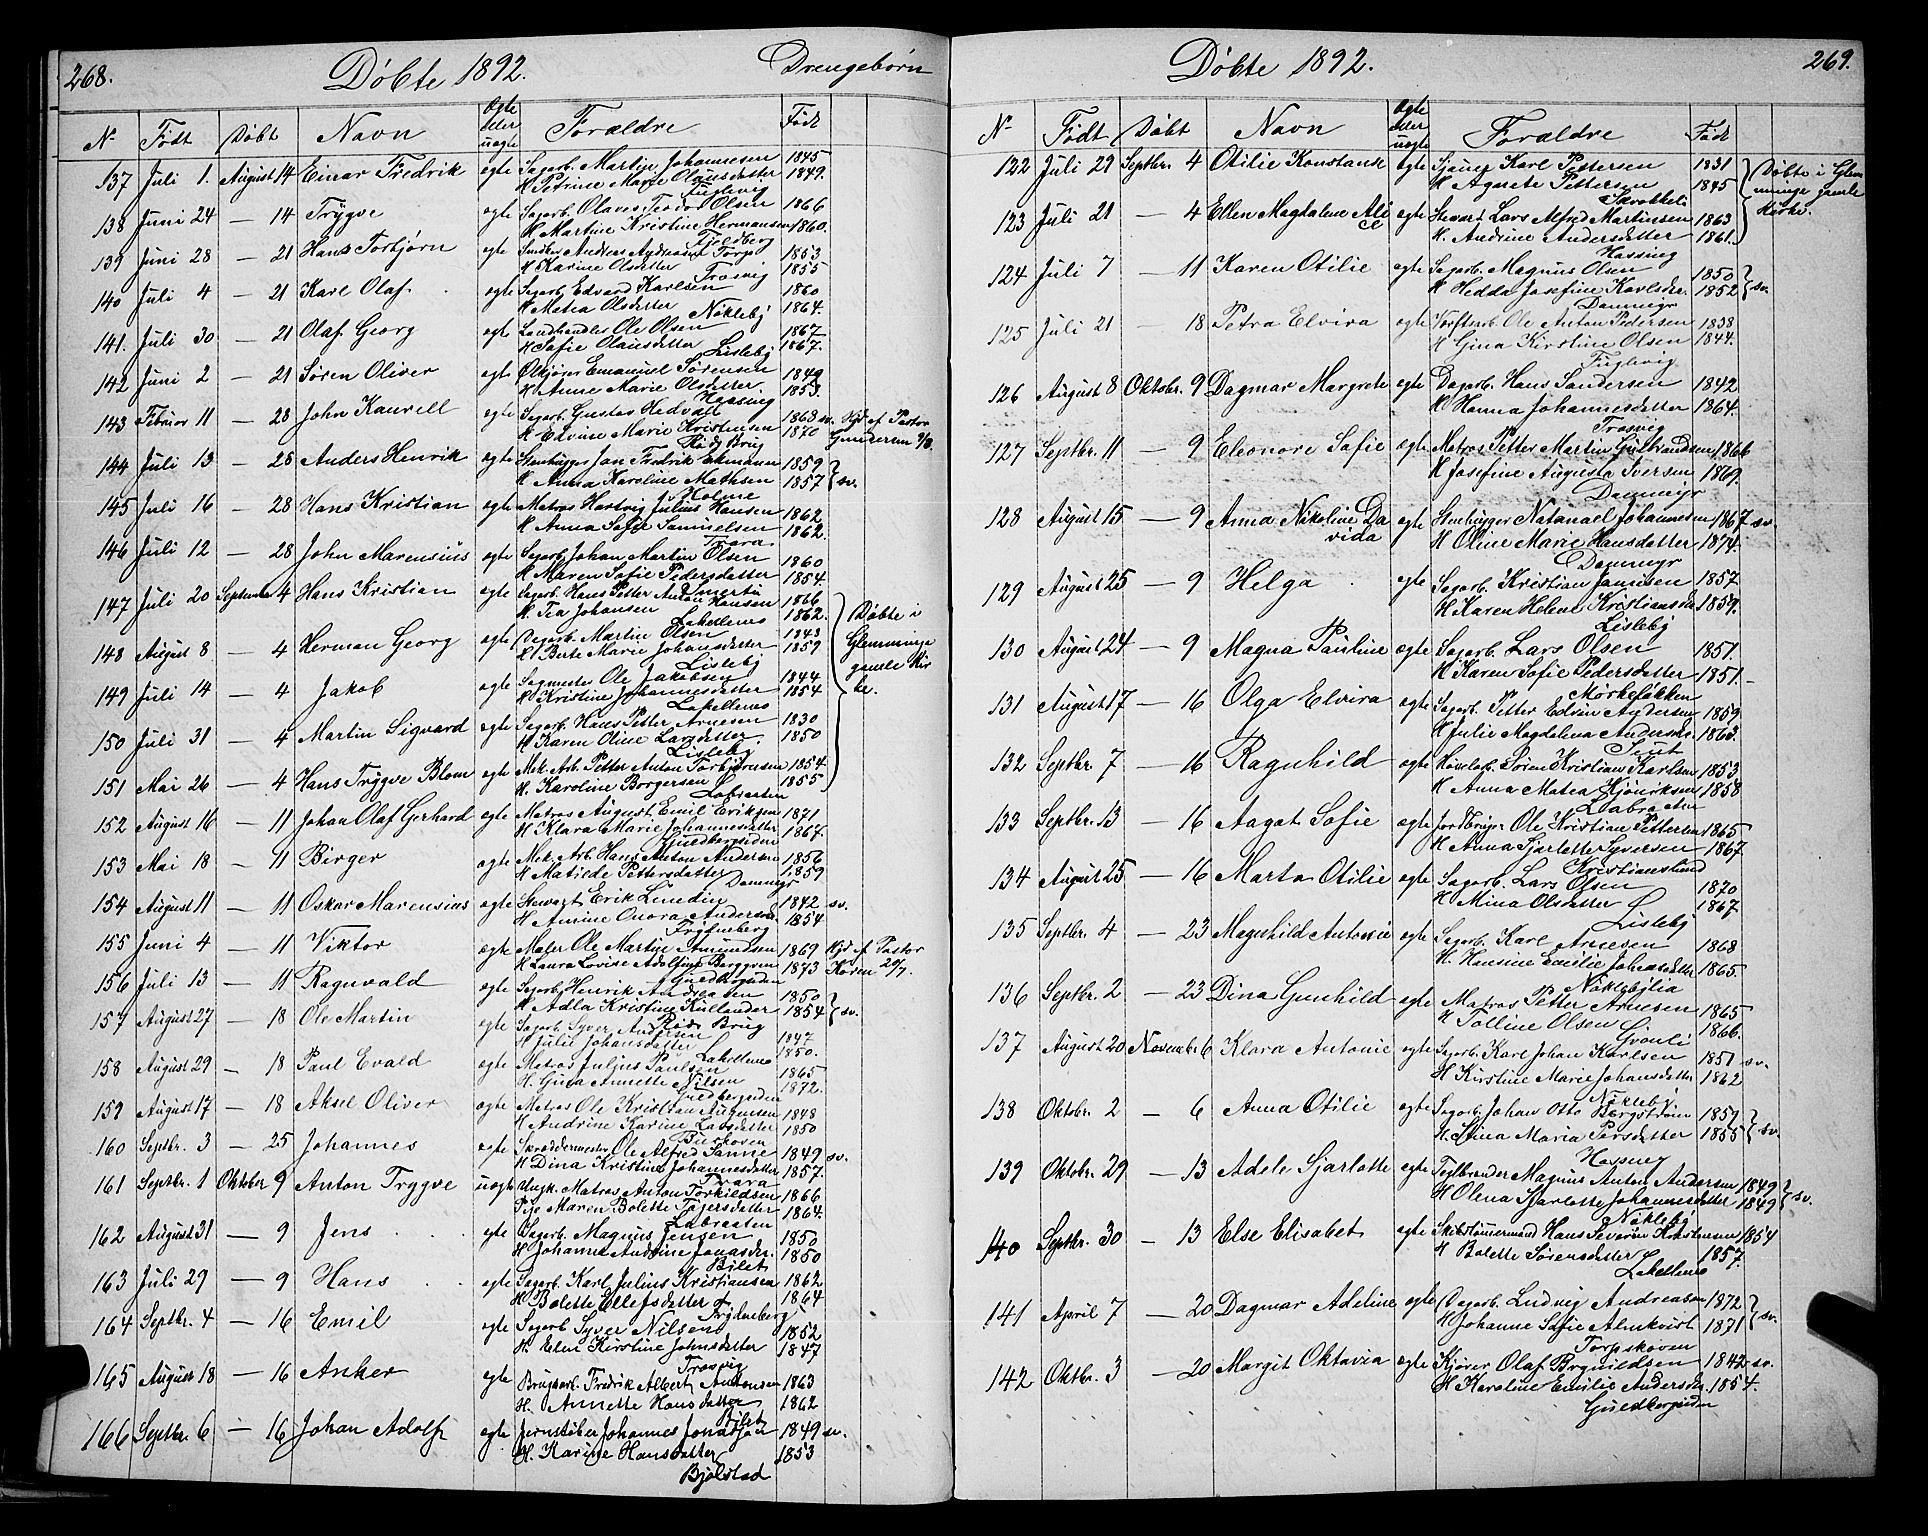 268.
Döbte 1892.
Drengebörn
N Födt Döbt Navn Ægte eller uægte Forældre Födt
137 Juli 1. August 14 Einar Fredrik egte Sagarb. Martin Johannesen 1845
H Petrine Marie Olausdatter 1849.
Fuglevig
138 Juni 24 — 14 Trygve egte Sagarb. Olaves Teodor Olsen 1866
H Martine Kristine Hermansen 1860.
Fjeldberg
139 Juni 28 — 21 Hans Torbjörn egte Andreas Torp 1853
H Karine Olsdatter 1855
Trosvig
140 Juli 4 — 21 Karl Olaf egte Sagarb. Edvard Karlsen 1860
H Matea Olsdatter 1864.
Nökleby
141. Juli 30 — 21 Olaf Georg egte Landhandler Ole Olsen 1867
H Sofie Olausdatter 1867.
Lisleby
142 Juni 2 — 21 Sören Oliver egte Ølkjörer Emanuel Sörensen 1849
H Anne Marie Olsdatter 1853.
Hassing
143 Februar 11 — 28 John Kaurell egte Sagarb. Gustav Hedvall 1868 sv. Hjd af Pastor
H Edvine Marie Kristensen 1870 Gundersen
Röds Brug
144 Juli 13 — 28 Anders Henrik egte Stenhugger Jan Fredrik Ekmann 1859
H Anna Karoline Mathsen 1857 } sv.
Holme
145 Juli 16 — 28 Hans Kristian egte Matros Hartvig Julius Hansen 1862
H Anna Sofie Samuelsen 1862.
Trara
146 Juli 12 — 28 John Marensius egte Sagarb. Johan Martin Olsen 1860
H Maren Sofie Pedersdatter 1854.
147 Juli 20 September 4 Hans Kristian egte Sagarb. Hans Petter Anton Hansen 1866
H Tea Johansen 1862.
Lakellenes
148 August 8 — 4 Herman Georg egte Dagarb. Martin Olsen 1843
H Berte Marie Johansdatter 1859
Lisleby
Döbte i
Glemminge
gamle Kir
ke.
149 Juli 14 — 4 Jakob egte Sagmester Ole Jakobsen 1844
H Kristine Johannesdatter 1854
Lakellenes
150 Juli 31 — 4 Martin Sigvard egte Sagarb. Hans Petter Arnesen 1830
H Karen Oline Larsdatter 1850
Lisleby
151 Mai 26 — 4 Hans Trygve Blom egte Mek. Arb. Petter Anton Torbjörnsen 1854
H. Karoline Borgersen 1855
Labraaten
152 August 16 — 11 Johan Olaf Gerhard egte Matros August Emil Eriksen 1871
H Klara Marie Johannesdatter 1867.
Guldbergsiden
153 Mai 18 — 11 Birger egte Mek. Arb. Hans Anton Andersen 1856
H Matilde Pettersdatter 1859
Dammyr
154 August 11 — 11 Oskar Marensius egte Stewart Erik Lundin 1842 sv.
H Amine Onora Andersd. 1854
Frydenberg
155 Juni 4 — 11 Viktor egte Maler Ole Martin Amundsen 1869 Hjd af Pastor
H Laura Lovise Adolfine Berggren 1873 Horen 24/7.
Guldbergsiden
156 Juli 13 — 11 Ragnvald egte Sagarb. Henrik Andreasen 1850
H Adla Kristine Kullander 1854 } sv.
Röds Brug
157 August 27 — 18 Ole Martin egte Sagarb. Syver Andersen 1847
H Julie Johansdatter 1850.
Lakellenes
158 August 29 — 18 Paul Evald egte Matros Julius Paulsen 1865
H. Gina Annette Nilsen 1872.
Guldbergsiden
159 August 17 — 18 Aksel Oliver egte Matros Ole Kristian Augensen 1848
H Andrine Karine Larsdatter 1850
Buskoven
160 Septbr. 3 — 25 Johannes egte Skræddermester Ole Alfred Sanne 1849 sv.
H Dina Kristine Johannesdatter 1857.
Trara
161 Septbr. 1 Oktober 9 Anton Trygve uægte Ungk. Matros Anton Torkildsen 1866
Pige Maren Bolette Tajersdatter 1864.
Labraaten
162 August 31 — 9 Jens egte Dagarb. Magnus Jensen 1850
H Johanne Andrine Jonasdr. 1850
Bilet
163 Juli 29 — 9 Hans egte Sagarb. Karl Julius Kristiansen 1862
H Bolette Ellefsdatter 1864
Frydenberg
164 Septbr. 4 — 16 Emil egte Sagarb Syver Nilsen 1852
H. Elen Kirstine Johnsdatter 1847
Trosvig
165 August 18 — 16 Anker egte Brugsarb. Fredrik Albert Antonsen 1863
H. Annette Hansdatter 1862
Bilet
166 Septbr. 6 — 16 Johan Adolf egte Jernstöber Johannes Jonassen 1849 sv.
H. Karine Hansdatter 1853
Bjölstad
Döbte 1892.
269.
N Födt Döbt Navn Ægte eller uægte Forældre Födt
122 Juli 29 Septbr. 4 Otilie Konstanse egte Sjömd Karl Pettersen 1831
H Agnete Pettersen 1845
Döbte i Glem
minge gamle
Kirke.
123 Juli 21 — 4 Ellen Magdalene Ali
ce egte Stewart Lars Alfred Martinsen 1863
H. Andrine Andersdatter 1861.
Hassing
124 Juli 7 — 11 Karen Otilie egte Sagarb. Magnus Olsen 1850
H Hedda Josefine Karlsdr. 1852 } sv.
Dammyr
125 Juli 21 — 18 Petra Elvira egte Værftsarb. Ole Anton Pedersen 1838
H Gina Kirstine Olsen 1844.
Fuglevig
126 August 8 Oktobr. 9 Dagmar Margrete egte Dagarb. Hans Sandersen 1842
H Hanna Johannesdatter 1864.
Trosvig
127 Septbr. 11 — 9 Eleonore Sofie egte Matros Petter Martin Gulbrandsen 1866
H Josefine Augusta Iversen 1869.
Dammyr
128 August 15 — 9 Anna Nikoline Da
vida egte Stenhugger Natanael Johannesen 1867 sv.
H Oline Marie Hansdatter 1874.
Dammyr
129 August 25 — 9 Helga egte Sagarb. Kristian Jansen 1857
H Karen Helene Kristiansen 1859.
Lisleby
130 August 24 — 9 Magna Pauline egte Sagarb. Lars Olsen 1851.
H Karen Sofie Pedersdatter 1851.
Mörkelökken
131 August 17 — 16 Olga Elvira egte Sagarb. Petter Edvin Andersen 1859
H Julie Magdalena Andersdr. 1863.
Seut
132 Septbr. 7 — 16 Ragnhild egte Hövelarb. Sören Kristian Karlsen 1853
H Anna Matea Hjöriksen 1858
Labraaten
133 Septbr. 13 — 16 Aagot Sofie egte Jordbruger Ole Kristian Pettersen 1865
H Anna Sjarlotte Syversen 1867.
Kristianslund
134 August 25 — 16 Marta Otilie egte Sagarb. Lars Olsen 1870
H Mina Olsdatter 1867
Lisleby
135 Septbr. 4 — 23 Magnhild Antonie egte Sagarb. Karl Arnesen 1868
H. Hansine Emilie Johansdatter 1865.
Nöklebylia
136 Septbr. 2 — 23 Dina Gunhild egte Matros Petter Arnesen 1865
H Tolline Olsen 1866.
137 August 20 November 6 Klara Antonie egte Sagarb. Karl Johan Karlsen 1851 sv.
H Kirstine Marie Johansdatter 1862
Nökleby
138 Oktobr. 2 — 6 Anna Otilie egte Sagarb. Johan Otto Bergström 1859
H. Stina Maria Persdatter 1855 } sv.
Hassing
139 Oktobr. 29 — 13 Adele Sjarlotte egte Teglbrænder Magnus Anton Andersen 1849
H Olena Sjarlotte Johannesdatter 1849 } sv.
Nökleby
140 Septbr. 30 — 13 Else Elisabet egte Skibstömmermand Hans Severin Kristensen 1854
H Bolette Sörensdatter 1857.
Lakellenes
141 April 7 — 20 Dagmar Adeline egte Dagarb. Ludvig Andreasen 1872
H Johanne Sofie Almkvist 1871 } sv.
Torpskoven
142 Oktbr. 3 — 20 Margit Oktavia egte Kjörer Olaf Brynildsen 1842 sv.
H Karoline Emilie Andersdr. 1854.
Guldbergsiden